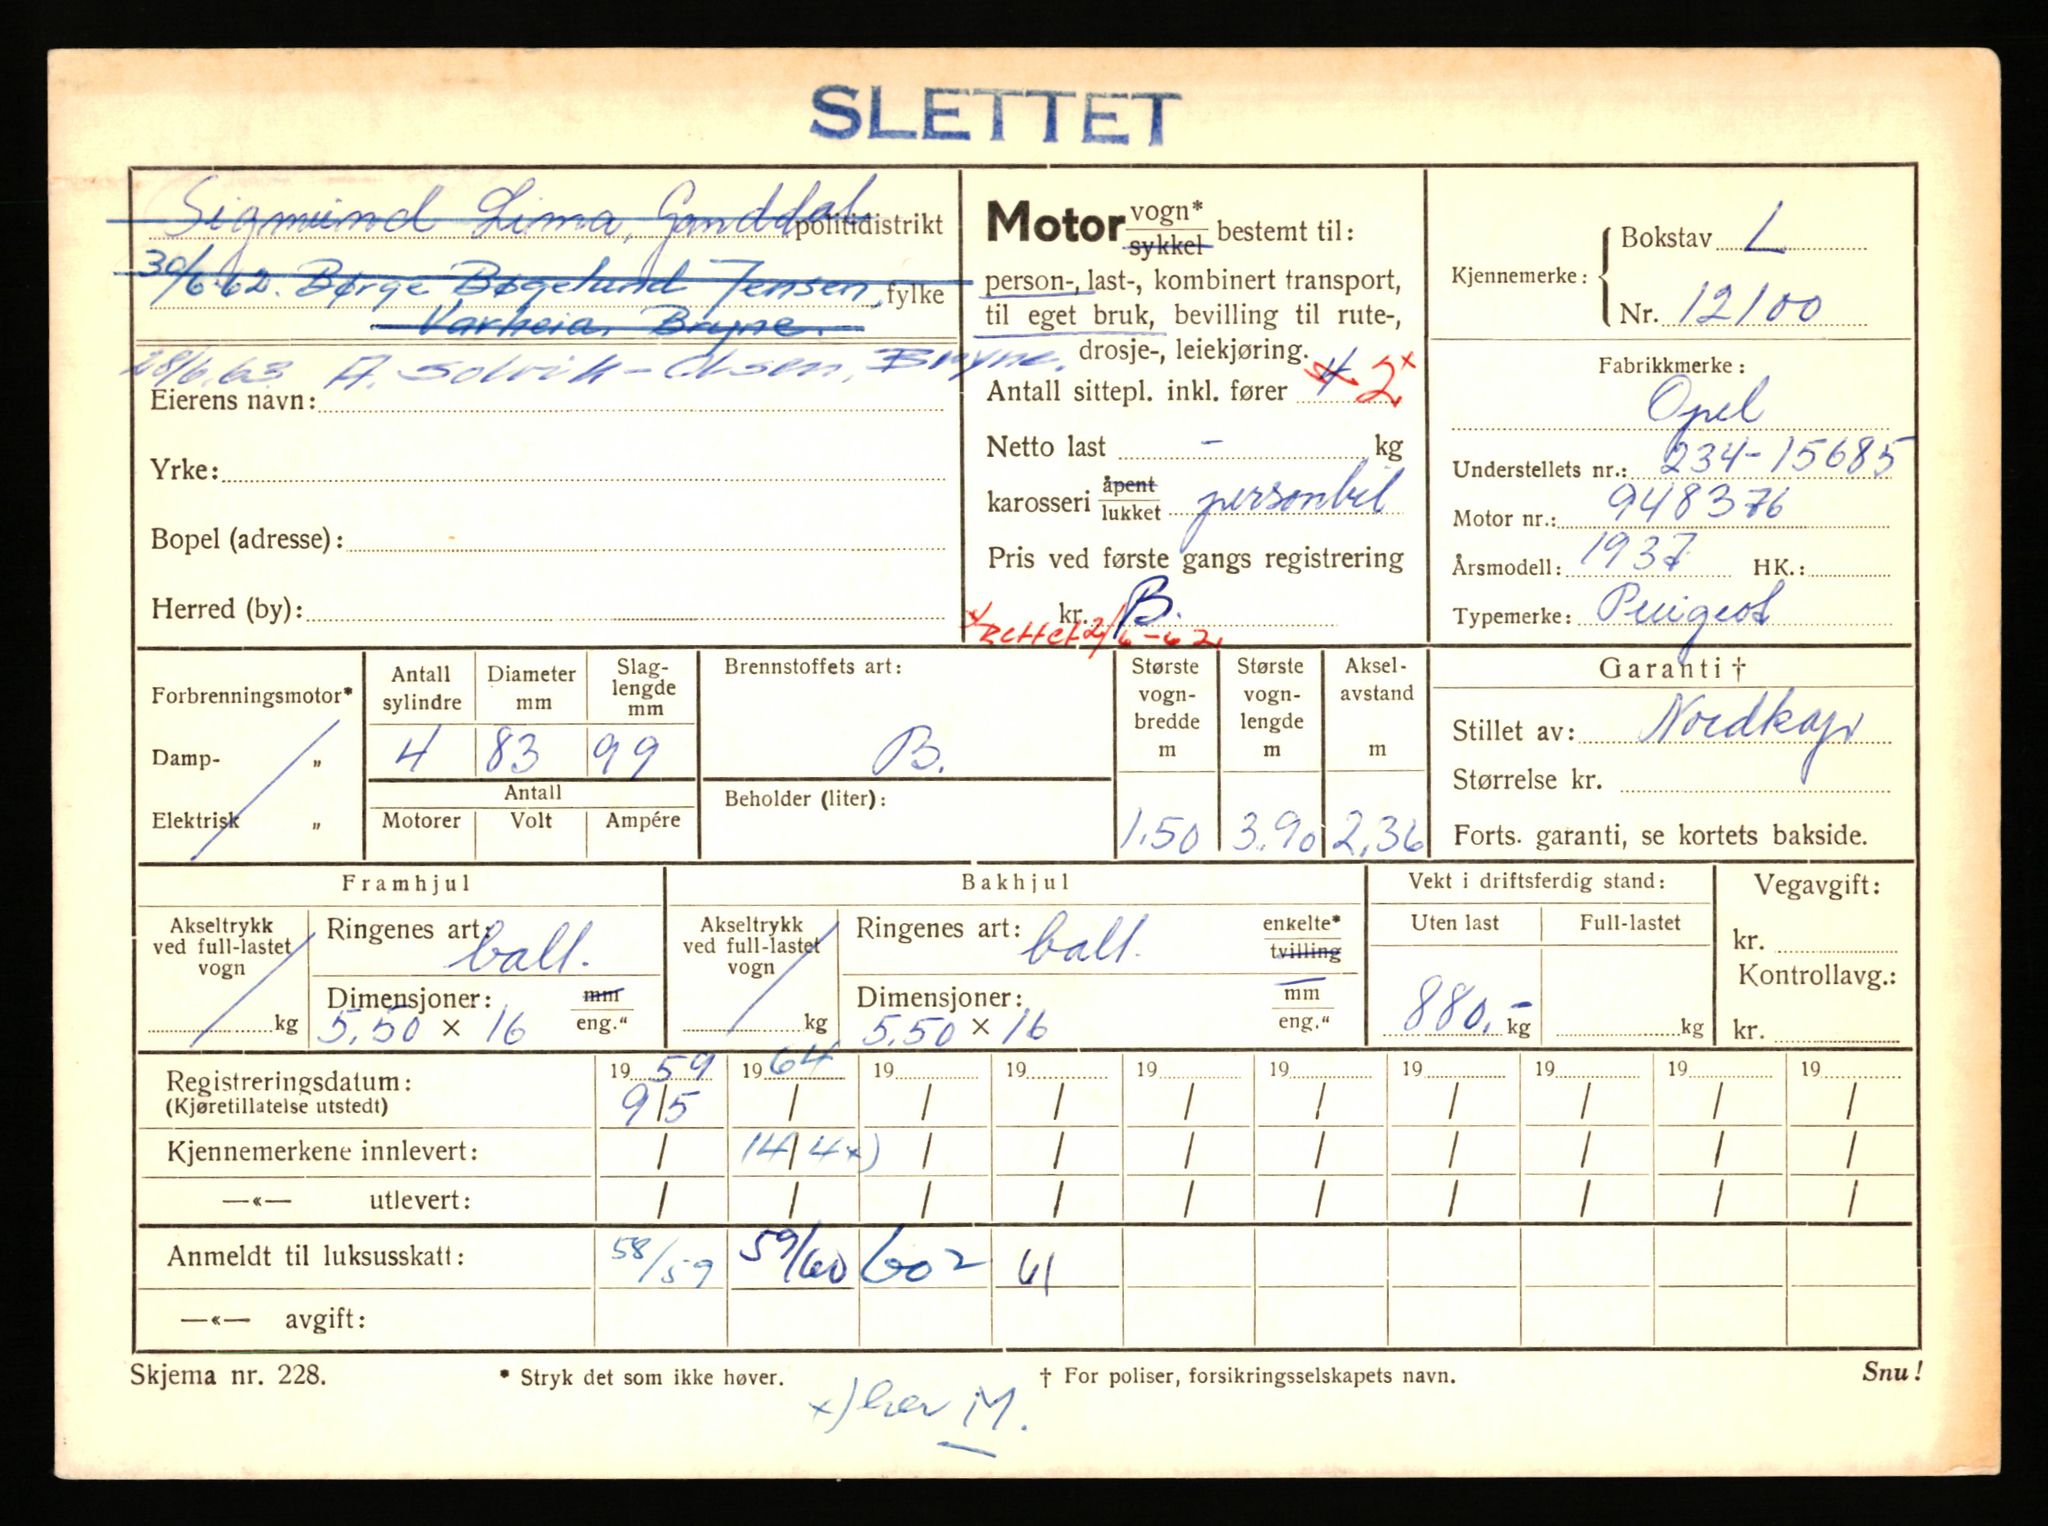 SLETTET
Sigmund Lima, Ganddal politidistrikt
30/6.62. Børge Bøgelund Jensen, fylke
Varheia, Bryne.
28/6.63. A. Solvik-Olsen, Bryne.
Eierens navn:
Yrke:
Bopel (adresse):
Herred (by):
Motor vogn* / sykkel bestemt til:
person-, last-, kombinert transport,
til eget bruk, bevilling til rute-,
drosje-, leiekjøring.
Antall sittepl. inkl. fører 4 2 x
Netto last - kg
karosseri åpent / lukket personbil
Pris ved første gangs registrering
kr. B.
x Rettet 2/6-62.
Kjennemerke: Bokstav L
Nr. 12100
Fabrikkmerke:
Opel
Understellets nr.: 234-15685
Motor nr.: 948376
Årsmodell: 1937 HK.:
Typemerke: Peugeot
Forbrenningsmotor*
Damp- „
Elektrisk „
Antall sylindre Diameter mm Slag-lengde mm
4 83 99
Antall
Motorer Volt Ampére
Brennstoffets art:
B.
Beholder (liter):
Største vogn-bredde m Største vogn-lengde m Aksel-avstand m
1.50 3.90 2.36
Garanti †
Stillet av: Nordkap
Størrelse kr.
Forts. garanti, se kortets bakside.
Framhjul
Akseltrykk ved full-lastet vogn kg
Ringenes art: ball.
Dimensjoner: mm / eng."
5.50 x 16
Bakhjul
Akseltrykk ved full-lastet vogn kg
Ringenes art: ball. enkelte* / tvilling
Dimensjoner: mm / eng."
5.50 x 16
Vekt i driftsferdig stand:
Uten last Full-lastet
880,- kg kg
Vegavgift:
kr.
Kontrollavg.:
kr.
Registreringsdatum: 19 59 19 64 19 19 19 19 19 19 19 19
(Kjøretillatelse utstedt) 9/5 / / / / / / / / /
Kjennemerkene innlevert: / 14/4 x) / / / / / / / /
—«— utlevert: / / / / / / / / / /
Anmeldt til luksusskatt: 58/59 59/60 602 61
—«— avgift:
Skjema nr. 228. * Stryk det som ikke høver. † For poliser, forsikringsselskapets navn. Snu!
x) her M.